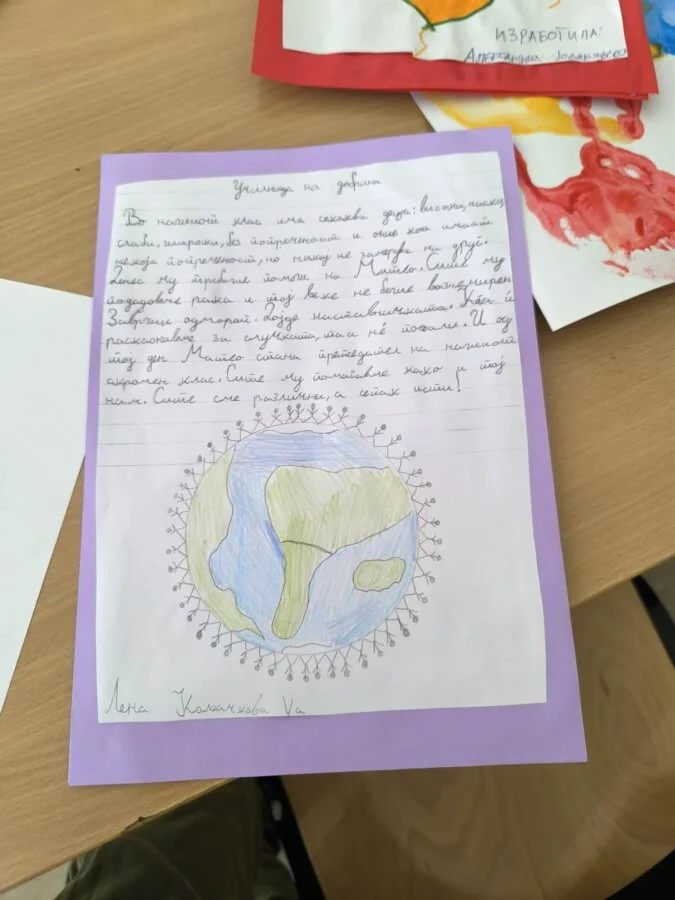 ИЗРАБОТИЛА:
Александра Јовановска
Училишта на добрина
Во нашиот клас има секакви деца: високи, ниски,
слаби, широки, без попреченост и оние кои имаат
некоја попреченост, но никој не заморува на друг.
Денес му требаше помош на Матео. Сите му
подадовме рака и тој веќе не беше вознемирен.
Заврши одморот. Дојде наставничката. Кога ѝ
раскажавме за случката, таа нѐ пофали. И од
тој ден Матео стана претседател на нашиот
скромен клас. Сите му помагавме како и тој
нам. Сите сме различни, а сепак исти!
Лена Vа